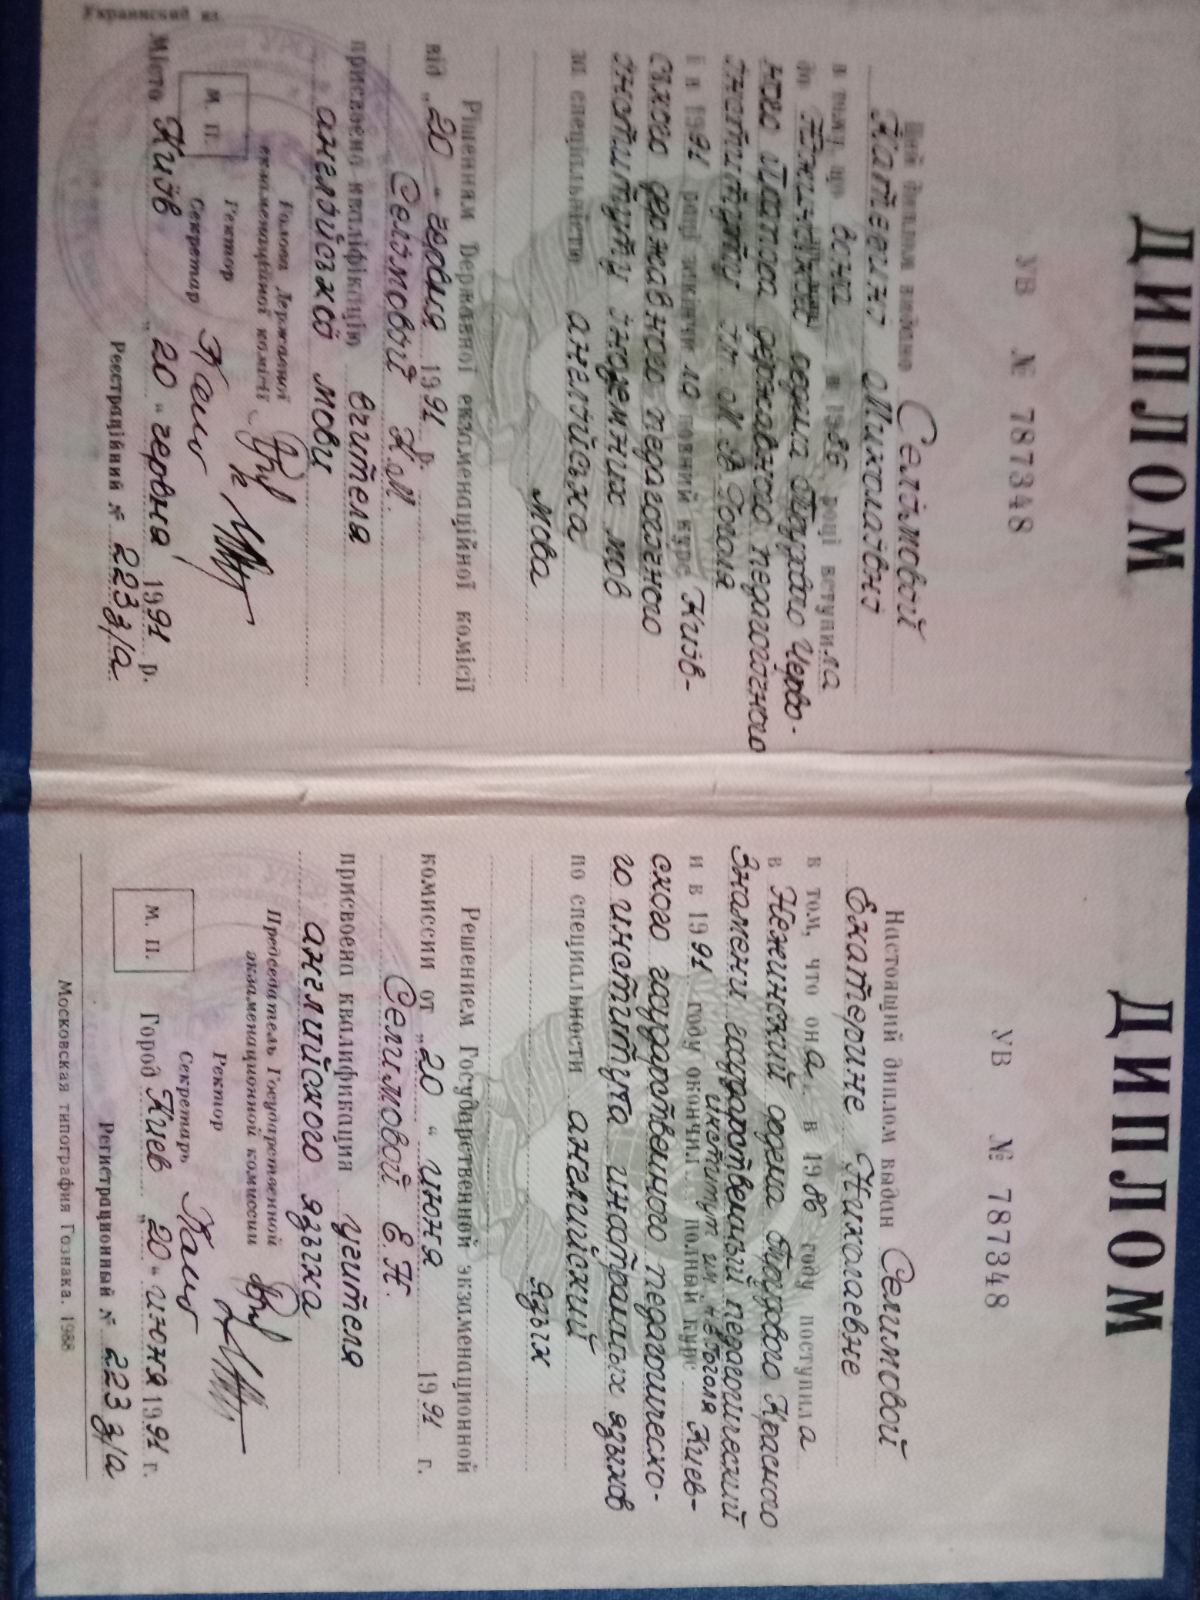 ДИПЛОМ
УВ № 787348
Цей диплом видано Селімовій
Катерині Миколаївні
в тому, що вона в 1986 році вступила
до Ніжинського ордена Трудового Черво-
ного Прапора державного педагогічного
інституту ім М В Гоголя
і в 1991 році закінчила повний курс Київ-
ського державного педагогічного
інституту іноземних мов
за спеціальністю англійська
мова
Рішенням Державної екзаменаційної комісії
від „20 “ червня 1991 р.
Селімовій К.М.
присвоєно кваліфікацію вчителя
англійської мови
Голова Державної
екзаменаційної комісії
Ректор
Секретар
М. П.
Місто Київ „20 “ червня 1991 р.
Реєстраційний № 223 з/а
Украинский яз.
ДИПЛОМ
УВ № 787348
Настоящий диплом выдан Селимовой
Екатерине Николаевне
в том, что она в 1986 году поступила
в Нежинский ордена Трудового Красного
Знамени государственный педагогический
институт им. Н.В.Гоголя
и в 1991 году окончил полный курс Киев-
ского государственного педагогическо-
го института иностранных языков
по специальности английский
язык
Решением Государственной экзаменационной
комиссии от „20 “ июня 1991 г.
Селимовой Е.Н.
присвоена квалификация учителя
английского языка
Председатель Государственной
экзаменационной комиссии
Ректор
Секретарь
М. П.
Город Киев „20 “ июня 1991 г.
Регистрационный № 223 з/а
Московская типография Гознака. 1988